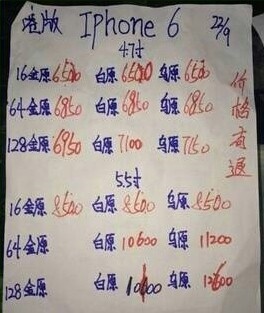 港版 Iphone 6 22/9
4.7寸
16金原6500 白原6500 乌原6500
64金原6850 白原6850 乌原6850
128金原6950 白原7100 乌原7150
5.5寸
16金原8500 白原8500 乌原8500
64金原 白原10600 乌原11200
128金原 白原 乌原
价格有